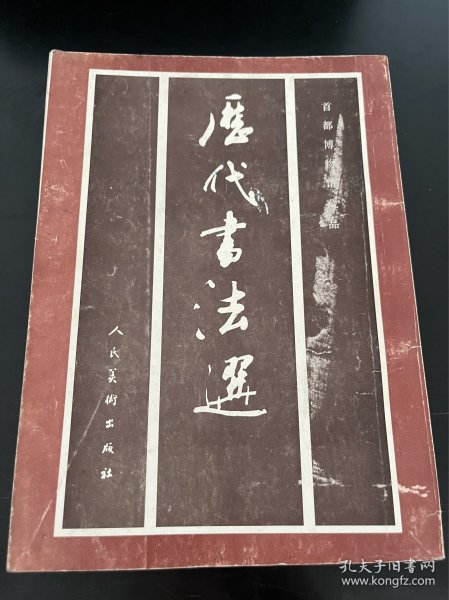 首都博 品
歷代書法選
人民美術出版社
孔夫子旧书网
www.kongfz.com